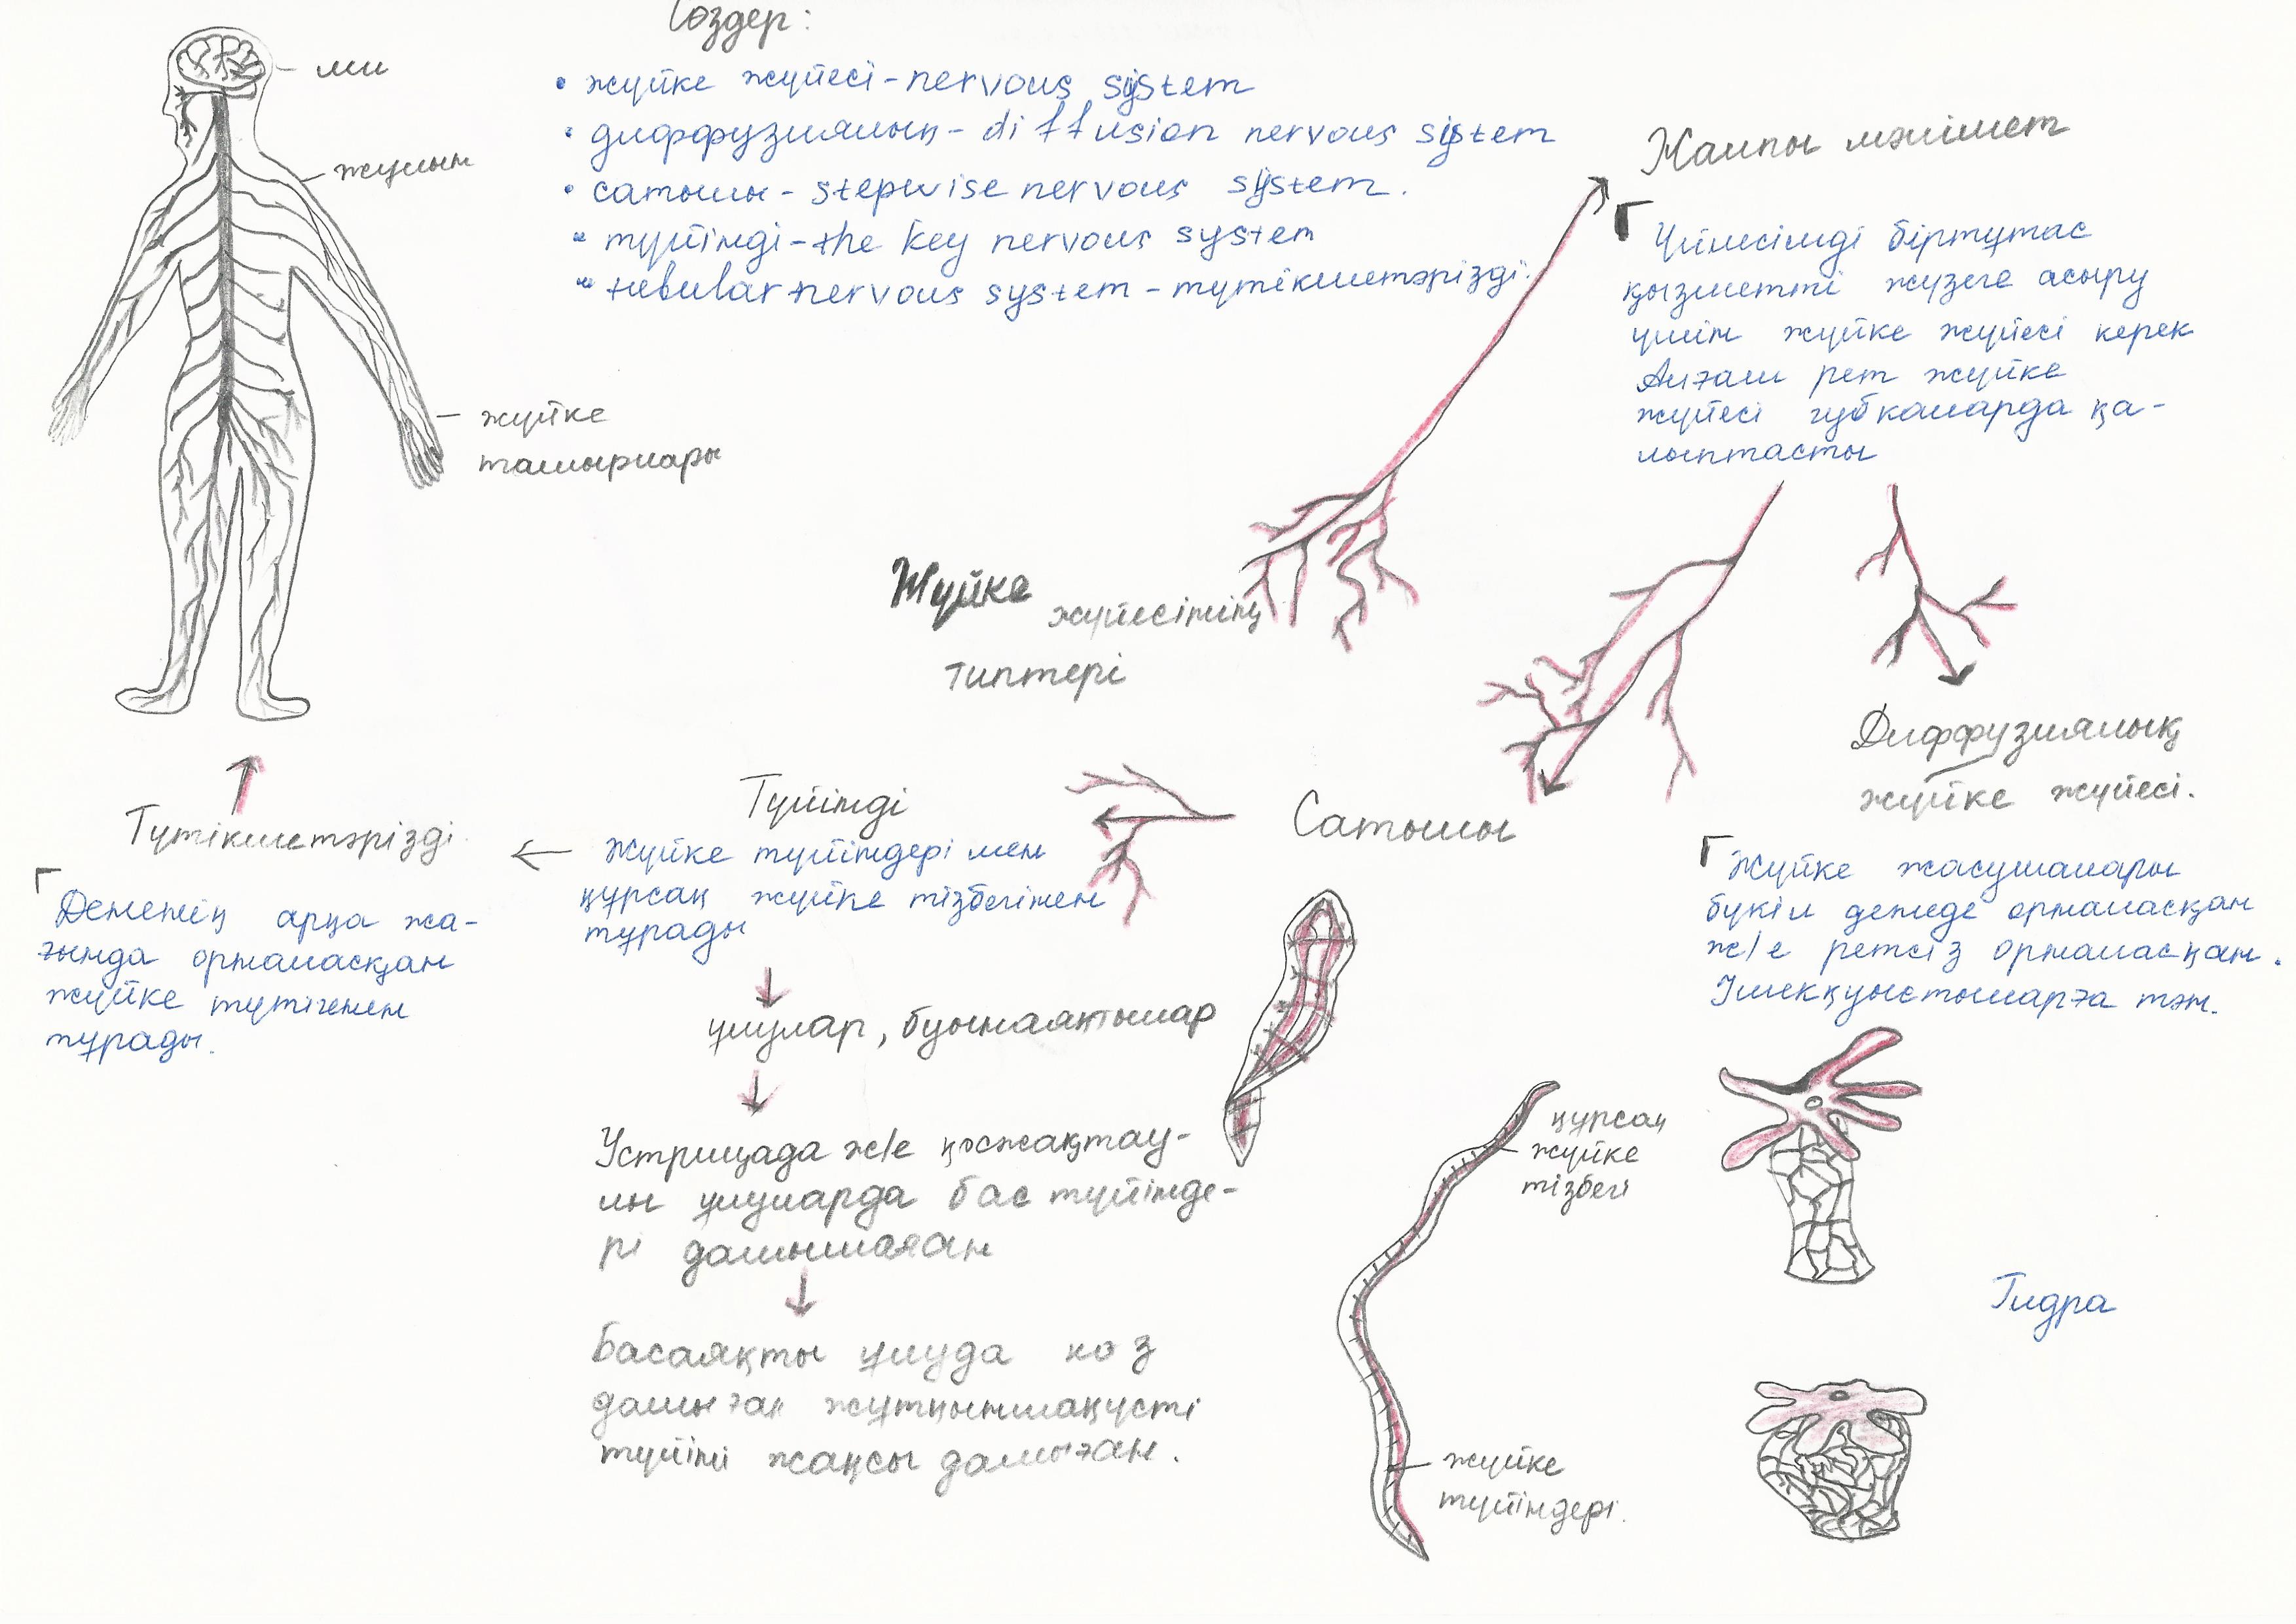 Сөздер:
• жүйке жүйесі - nervous system
• диффузиялық - diffusion nervous system
• сатылы - stepwise nervous system.
• түйінді - the key nervous system
• tubular nervous system - түтікшетәрізді.
ми
жұлын
жүйке
тамырлары
Жалпы мәлімет
Үйлесімді біртұтас
қызметті жүзеге асыру
үшін жүйке жүйесі керек
Алғаш рет жүйке
жүйесі губкаларда қа-
лыптасты
Жүйке жүйесінің
типтері
Диффузиялық
жүйке жүйесі.
Жүйке жасушалары
бүкіл денеде орналасқан
ж/е ретсіз орналасқан.
Ішекқуыстыларға тән.
Гидра
Сатылы
құрсақ
жүйке
тізбегі
жүйке
түйіндері.
Түйінді
Жүйке түйіндері мен
құрсақ жүйке тізбегінен
тұрады
ұлулар, буынаяқтылар
Устрицада ж/е қосжақтау-
лы ұлуларда бас түйінде-
рі дамымаған
Басаяқты ұлуда көз
дамыған жұтқыншақүсті
түйіні жақсы дамыған.
Түтікшетәрізді
Дененің арқа жа-
ғында орналасқан
жүйке түтігенен
тұрады.